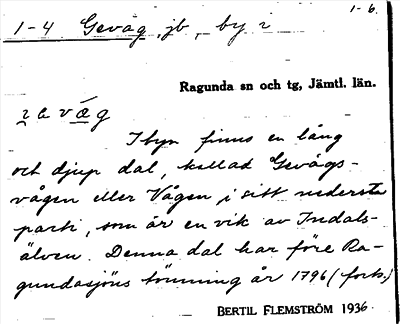 1-6.
1-4 Gevåg, jb, by i
Ragunda sn och tg, Jämtl. län.
I byn finns en lång
och djup dal, kallad Gevågs-
vågen eller Vågen, i sitt nedersta
parti, som är en vik av Indals-
älven. Denna dal har före Ra-
gundasjöns tömning år 1796 (forts.)
BERTIL FLEMSTRÖM 1936